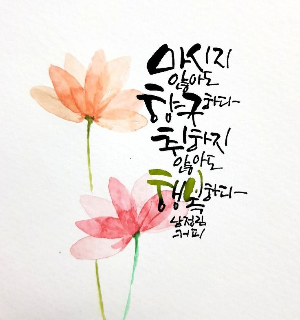 마시지
않아도
향긋하다
취하지
않아도
행복하다
남정림
커피